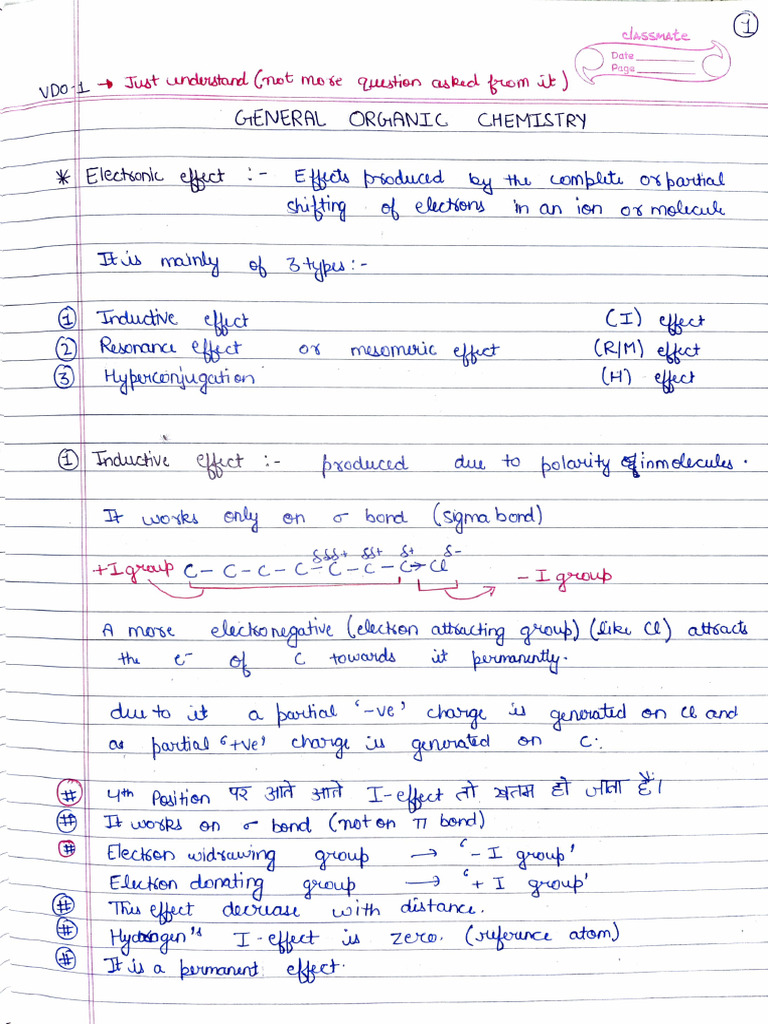 1
classmate
Date
Page
VDO-1 → Just understand (not more question asked from it)
GENERAL ORGANIC CHEMISTRY
* Electronic effect :- Effects produced by the complete or partial
shifting of electrons in an ion or molecule
It is mainly of 3 types:-
① Inductive effect (I) effect
② Resonance effect or mesomeric effect (R/M) effect
③ Hyperconjugation (H) effect
① Inductive effect :- produced due to polarity of in molecules.
It works only on σ bond (sigma bond)
δδδ+ δδ+ δ+ δ-
+I group C - C - C - C - C - C - C → Cl
- I group
A more electronegative (electron attracting group) (like Cl) attracts
the e⁻ of C towards it permanently.
due to it a partial '-ve' charge is generated on Cl and
as partial '+ve' charge is generated on C.
# 4th Position पर आते आते I-effect तो खतम हो जाता है।
# It works on σ bond (not on π bond)
# Electron widrawing group → '- I group'
Electron donating group → '+ I group'
# This effect decrease with distance.
# Hydrogen's I-effect is zero. (reference atom)
# It is a permanent effect.